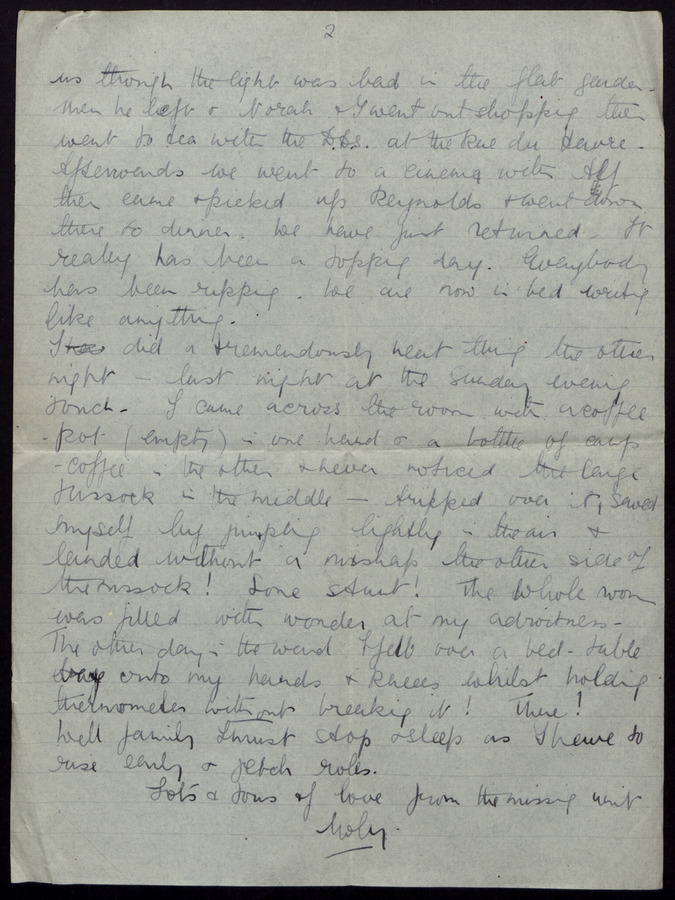 2
us though the light was bad in the flat garden.
Then he left & Norah & I went out shopping then
went to tea with the D.Ds. at the Rue du Havre.
Afterwards we went to a cinema with Alf
then came & picked up Reynolds & went down
there to dinner. We have just returned. It
really has been a topping day. Everybody
has been ripping. We are now in bed writing
like anything.
I did a tremendously neat thing the other
night – last night at the Sunday evening
. I came across the room with a coffee
pot (empty) in one hand & a bottle of camp
-coffee in the other & never noticed the large
tussock in the middle – tripped over it, saved
myself by jumping lightly in the air &
landed without a mishap the other side of
the tussock! Some stunt! The whole room
was filled with wonder at my adroitness –
The other day in the ward I fell over a bed-table
onto my hands & knees whilst holding
thermometer without breaking it! There!
Well family I must stop & sleep as I have to
rise early & fetch rolls.
Lots & tons of love from the missing unit